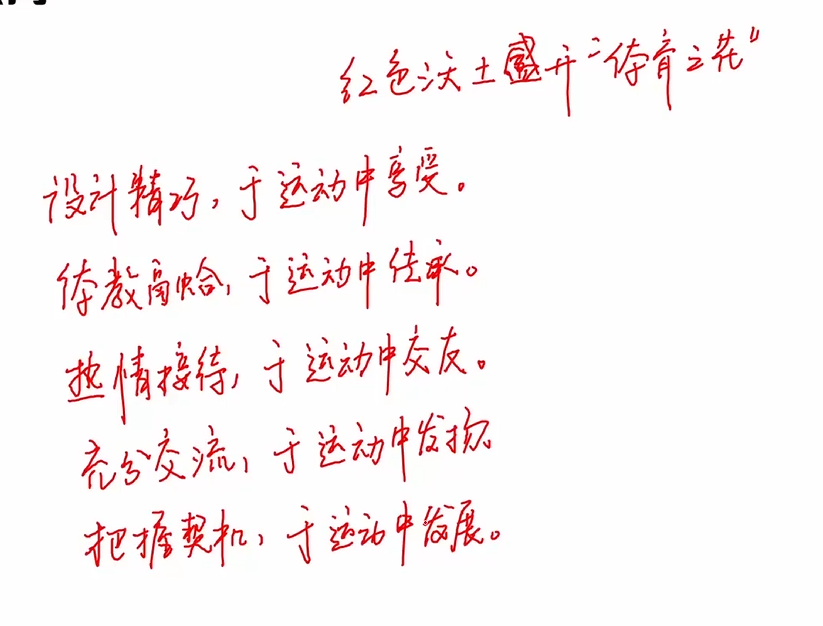 红色沃土盛开“体育之花”
设计精巧，于运动中享受。
体教高恰，于运动中传承。
热情接待，于运动中交友。
充分交流，于运动中发扬。
把握契机，于运动中发展。